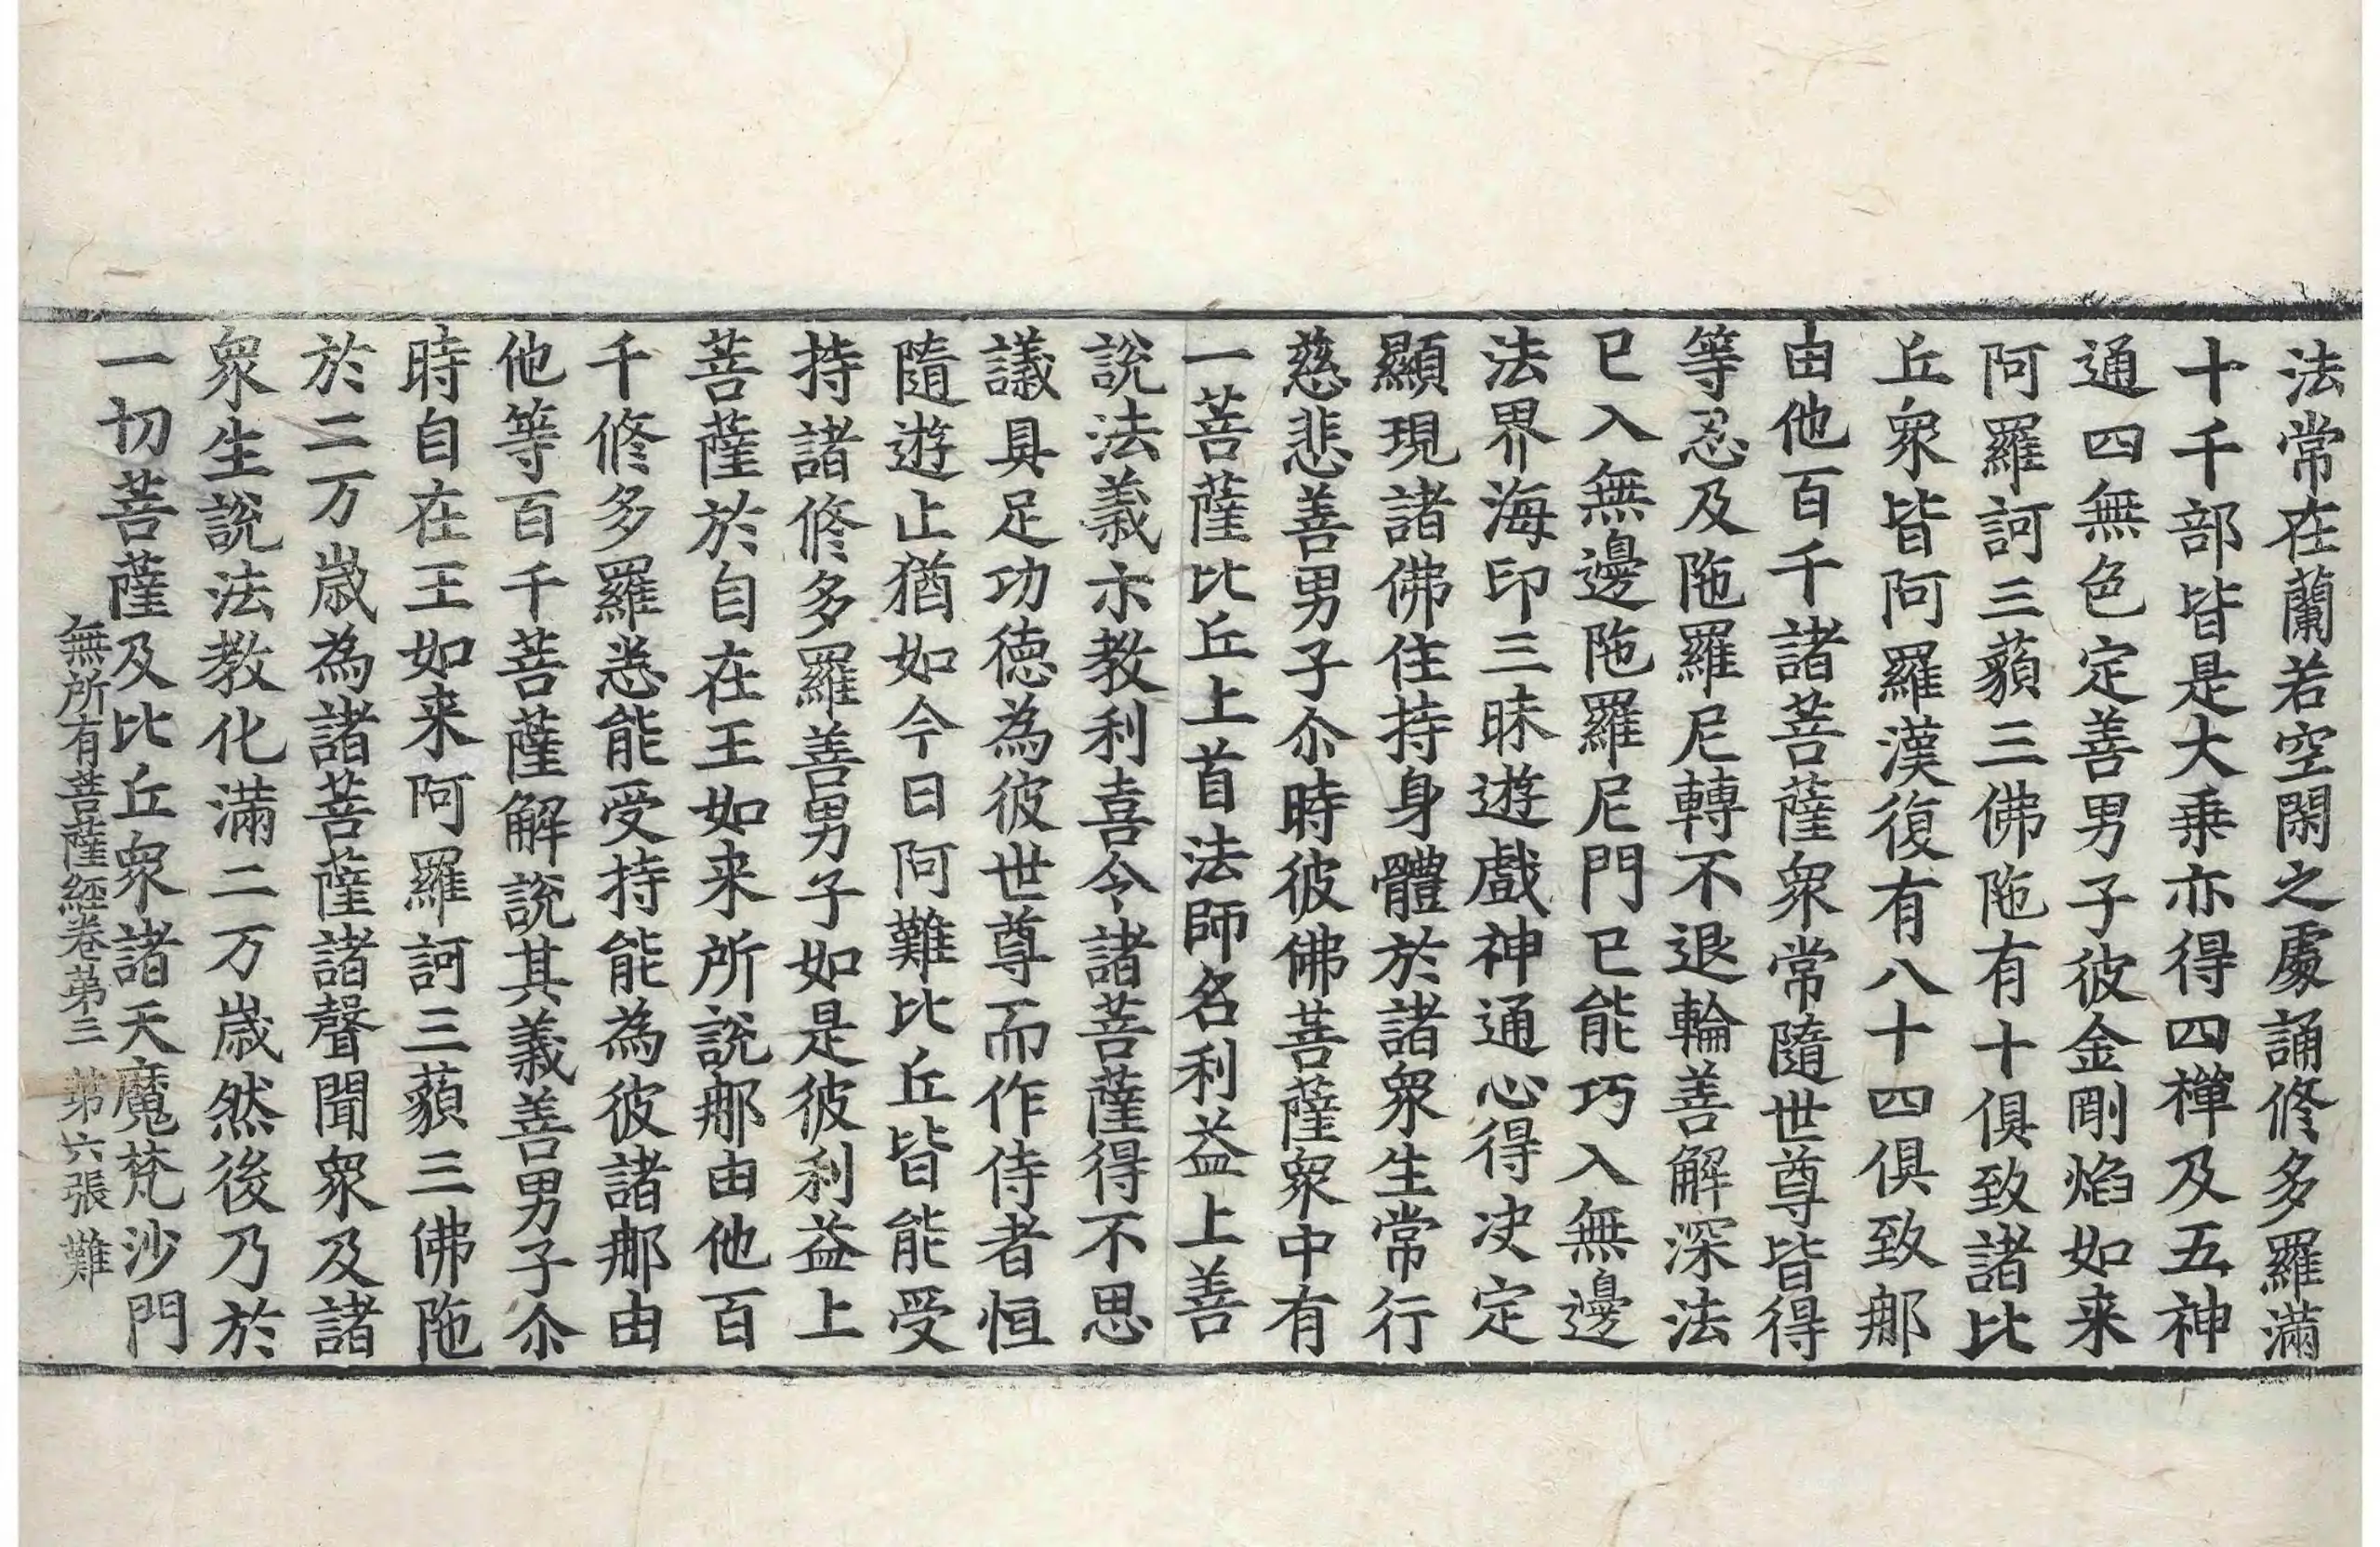 法常在蘭若空閑之處誦修多羅滿
十千部皆是大乗亦得四禪及五神
通四無色定善男子彼金剛焰如来
阿羅訶三藐三佛陁有十俱致諸比
丘衆皆阿羅漢復有八十四俱致那
由他百千諸菩薩衆常隨世尊皆得
等忍及陁羅尼轉不退輪善解深法
已入無邊陁羅尼門已能巧入無邊
法界海印三昧遊戲神通心得决定
顯現諸佛住持身體於諸衆生常行
慈悲善男子尒時彼佛菩薩衆中有
一菩薩比丘上首法師名利益上善
說法義示教利喜令諸菩薩得不思
議具足功德為彼世尊而作侍者恒
隨遊止猶如今日阿難比丘皆能受
持諸修多羅善男子如是彼利益上
菩薩於自在王如来所說那由他百
千修多羅悉能受持能為彼諸那由
他等百千菩薩解說其義善男子尒
時自在王如来阿羅訶三藐三佛陁
於二万歲為諸菩薩諸聲聞衆及諸
衆生說法教化滿二万歲然後乃於
一切菩薩及比丘衆諸天魔梵沙門
無所有菩薩経卷第三 第六張 難